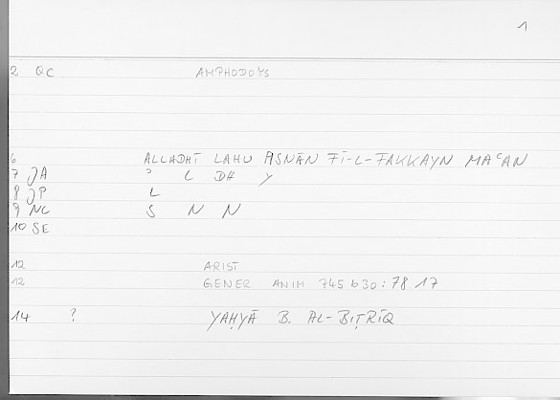 1
2 QC AMPHODOYS
6 ALLADHĪ LAHU ASNĀN FĪ-L-FAKKAYN MAʿAN
7 JA ʾ L DH Y
8 JP L
9 NC S N N
10 SE
12 ARIST
12 GENER ANIM 745 b 30 : 78 17
14 ? YAḤYĀ B. AL-BIṬRĪQ